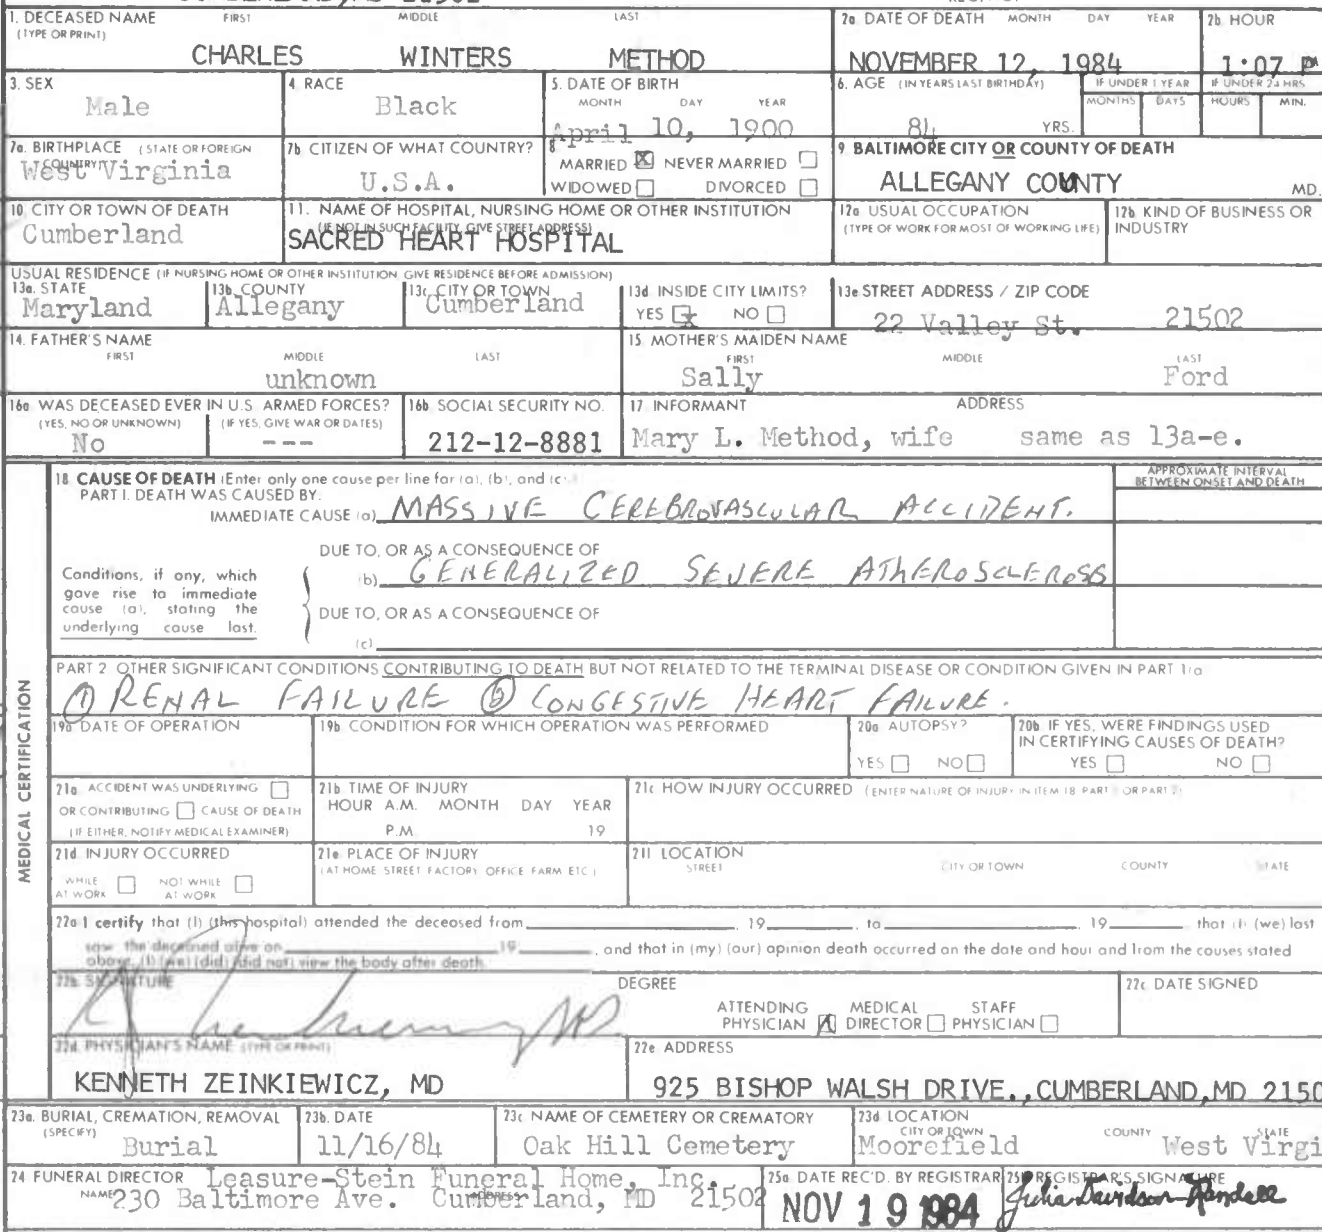 1. DECEASED NAME (TYPE OR PRINT) FIRST MIDDLE LAST
CHARLES WINTERS METHOD
2a DATE OF DEATH MONTH DAY YEAR
NOVEMBER 12, 1984
2b HOUR
1:07 PM
3. SEX
Male
4. RACE
Black
5. DATE OF BIRTH
MONTH DAY YEAR
April 10, 1900
6. AGE (IN YEARS LAST BIRTHDAY)
84 YRS.
IF UNDER 1 YEAR
MONTHS DAYS
IF UNDER 24 HRS
HOURS MIN.
7a. BIRTHPLACE (STATE OR FOREIGN COUNTRY)
West Virginia
7b CITIZEN OF WHAT COUNTRY?
U.S.A.
8
MARRIED X NEVER MARRIED
WIDOWED DIVORCED
9 BALTIMORE CITY OR COUNTY OF DEATH
ALLEGANY COUNTY MD.
10. CITY OR TOWN OF DEATH
Cumberland
11. NAME OF HOSPITAL, NURSING HOME OR OTHER INSTITUTION
(IF NOT IN SUCH FACILITY, GIVE STREET ADDRESS)
SACRED HEART HOSPITAL
12a USUAL OCCUPATION
(TYPE OF WORK FOR MOST OF WORKING LIFE)
12b KIND OF BUSINESS OR
INDUSTRY
USUAL RESIDENCE (IF NURSING HOME OR OTHER INSTITUTION GIVE RESIDENCE BEFORE ADMISSION)
13a. STATE
Maryland
13b. COUNTY
Allegany
13c. CITY OR TOWN
Cumberland
13d INSIDE CITY LIMITS?
YES X NO
13e STREET ADDRESS / ZIP CODE
22 Valley St. 21502
14. FATHER'S NAME
FIRST MIDDLE LAST
unknown
15. MOTHER'S MAIDEN NAME
FIRST MIDDLE LAST
Sally Ford
16a WAS DECEASED EVER IN U.S. ARMED FORCES?
(YES, NO OR UNKNOWN) (IF YES, GIVE WAR OR DATES)
No ---
16b SOCIAL SECURITY NO.
212-12-8881
17 INFORMANT ADDRESS
Mary L. Method, wife same as 13a-e.
MEDICAL CERTIFICATION
18 CAUSE OF DEATH (Enter only one cause per line for (a), (b), and (c).)
PART I. DEATH WAS CAUSED BY:
APPROXIMATE INTERVAL
BETWEEN ONSET AND DEATH
IMMEDIATE CAUSE (a) MASSIVE CEREBROVASCULAR ACCIDENT.
DUE TO, OR AS A CONSEQUENCE OF
(b) GENERALIZED SEVERE ATHEROSCLEROSIS
Conditions, if any, which
gave rise to immediate
cause (a), stating the
underlying cause last.
DUE TO, OR AS A CONSEQUENCE OF
(c)
PART 2 OTHER SIGNIFICANT CONDITIONS CONTRIBUTING TO DEATH BUT NOT RELATED TO THE TERMINAL DISEASE OR CONDITION GIVEN IN PART 1(a)
① RENAL FAILURE ② CONGESTIVE HEART FAILURE.
19a DATE OF OPERATION
19b CONDITION FOR WHICH OPERATION WAS PERFORMED
20a AUTOPSY?
YES NO
20b IF YES, WERE FINDINGS USED
IN CERTIFYING CAUSES OF DEATH?
YES NO
21a ACCIDENT WAS UNDERLYING
OR CONTRIBUTING CAUSE OF DEATH
(IF EITHER, NOTIFY MEDICAL EXAMINER)
21b TIME OF INJURY
HOUR A.M. MONTH DAY YEAR
P.M. 19
21c HOW INJURY OCCURRED (ENTER NATURE OF INJURY IN ITEM 18 PART 1 OR PART 2)
21d INJURY OCCURRED
WHILE AT WORK NOT WHILE AT WORK
21e PLACE OF INJURY
(AT HOME STREET FACTORY OFFICE FARM ETC.)
21f LOCATION
STREET CITY OR TOWN COUNTY STATE
22a I certify that (I) (this hospital) attended the deceased from 19 to 19 that (I) (we) last
saw the deceased alive on 19, and that in (my) (our) opinion death occurred on the date and hour and from the causes stated
above, (I) (we) (did) (did not) view the body after death.
22b. SIGNATURE
DEGREE
MD
ATTENDING PHYSICIAN X MEDICAL DIRECTOR STAFF PHYSICIAN
22c DATE SIGNED
22d. PHYSICIAN'S NAME (TYPE OR PRINT)
KENNETH ZEINKIEWICZ, MD
22e ADDRESS
925 BISHOP WALSH DRIVE., CUMBERLAND, MD 2150
23a. BURIAL, CREMATION, REMOVAL
(SPECIFY)
Burial
23b. DATE
11/16/84
23c NAME OF CEMETERY OR CREMATORY
Oak Hill Cemetery
23d LOCATION
CITY OR TOWN COUNTY STATE
Moorefield West Virgi
24 FUNERAL DIRECTOR
NAME ADDRESS
Leasure-Stein Funeral Home, Inc.
230 Baltimore Ave. Cumberland, MD 21502
25a DATE REC'D. BY REGISTRAR
NOV 19 1984
25b REGISTRAR'S SIGNATURE
Julia Davidson-Randall